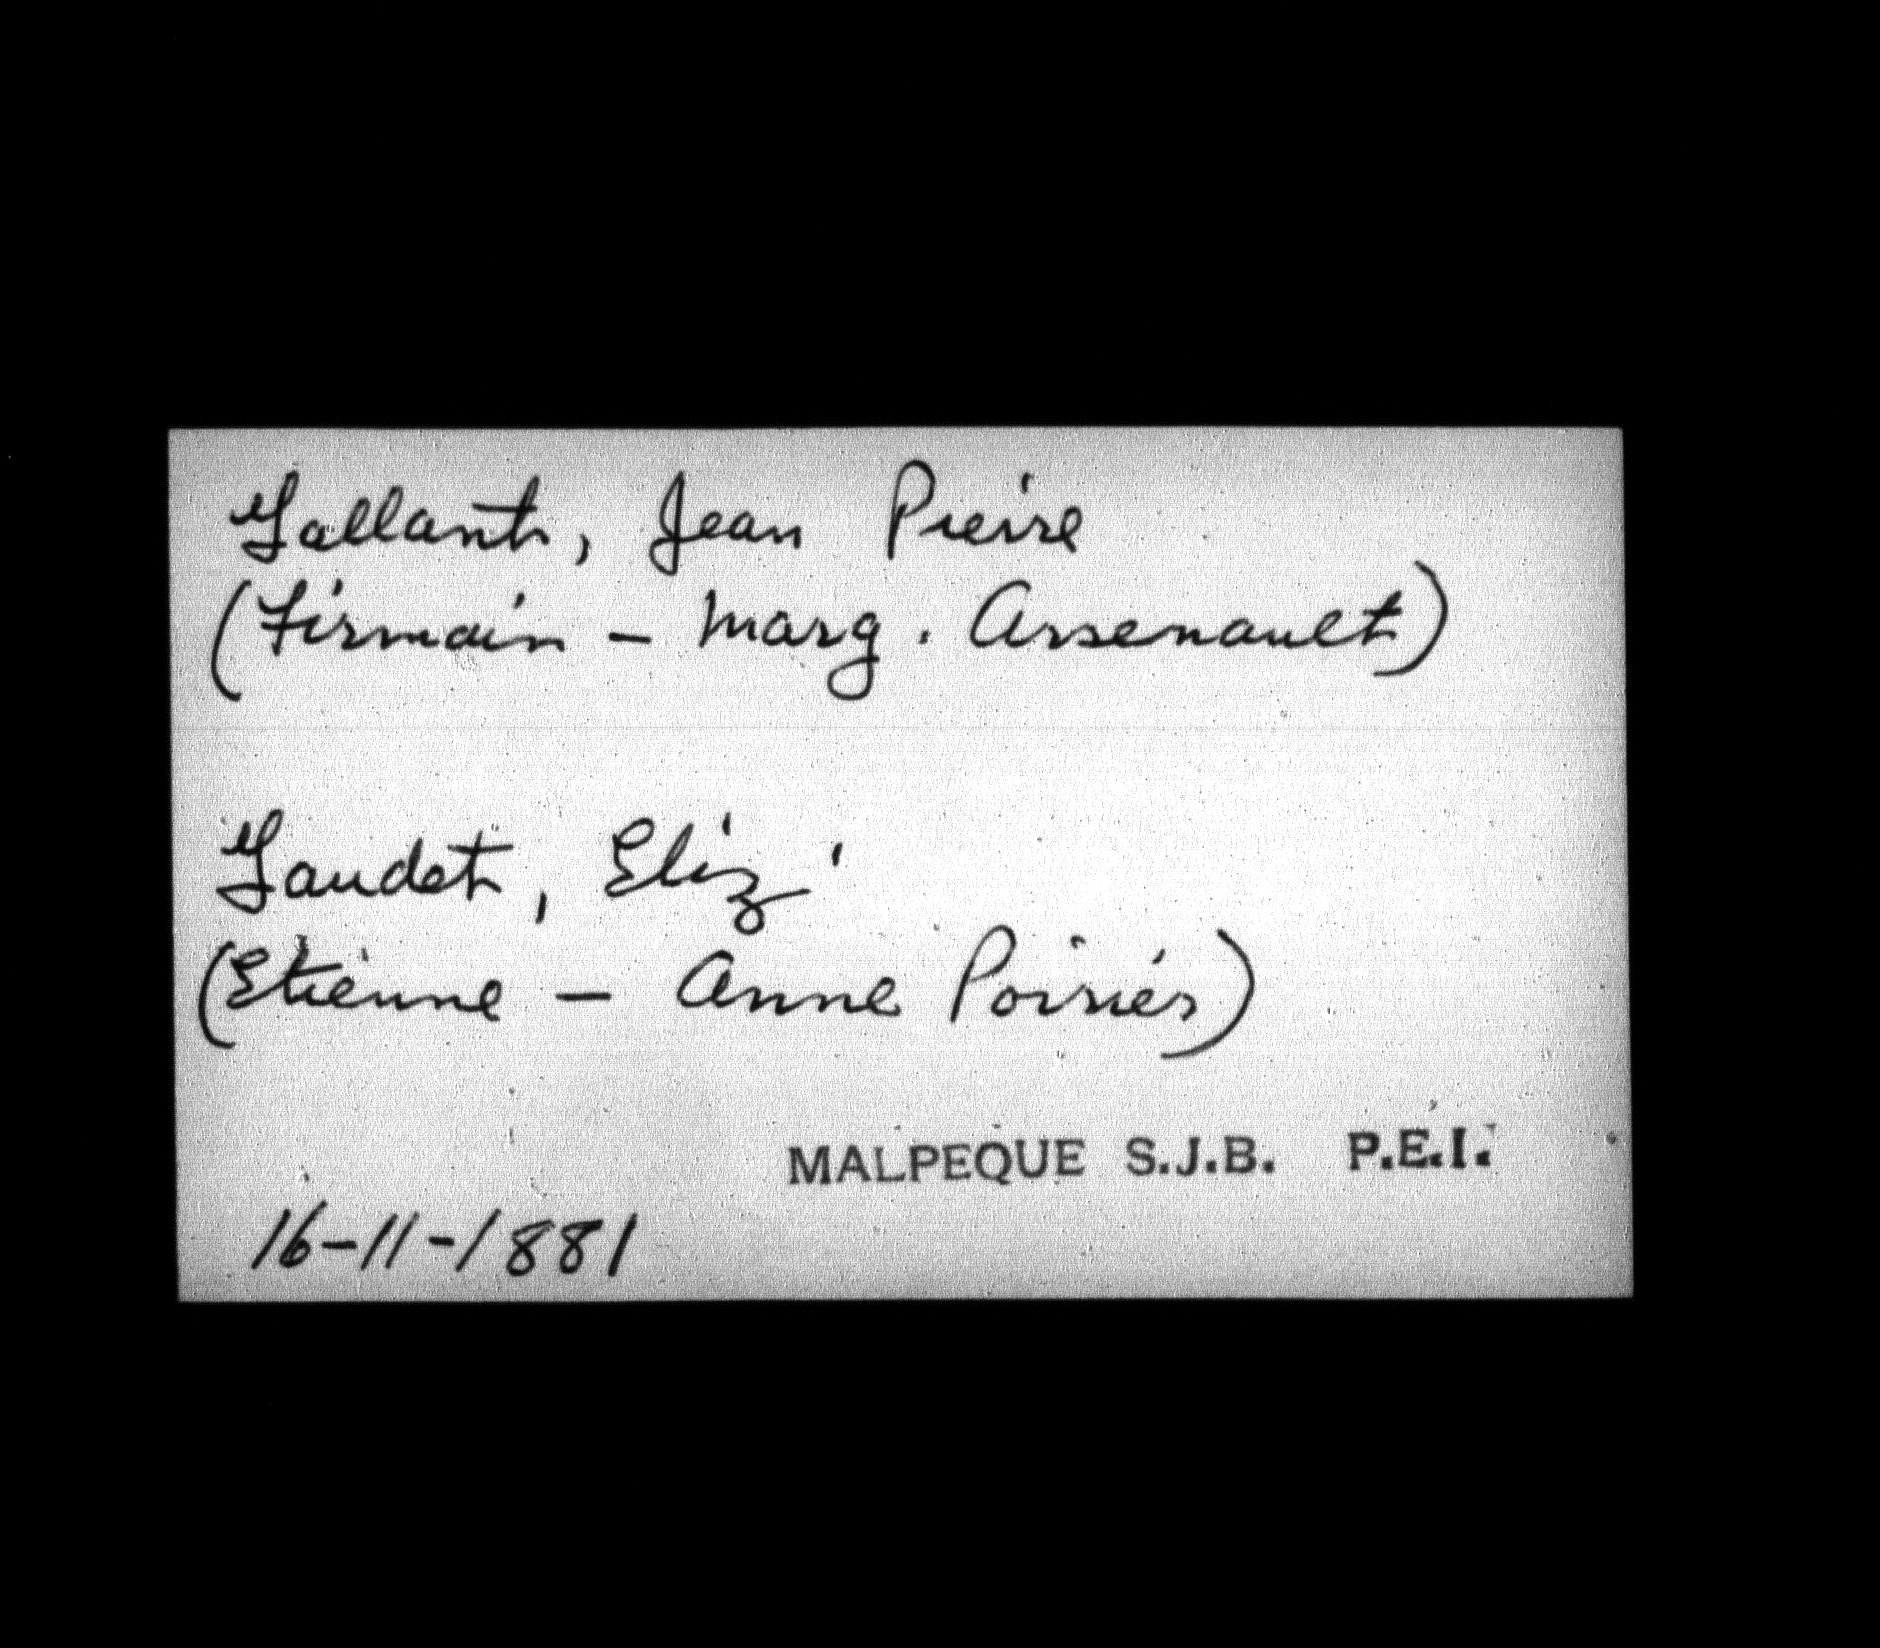 Gallant, Jean Pierre
(Firmain - Marg. Arsenault)
Gaudet, Eliz'
(Etienne - Anne Poirier)
MALPEQUE S.J.B. P.E.I.
16-11-1881